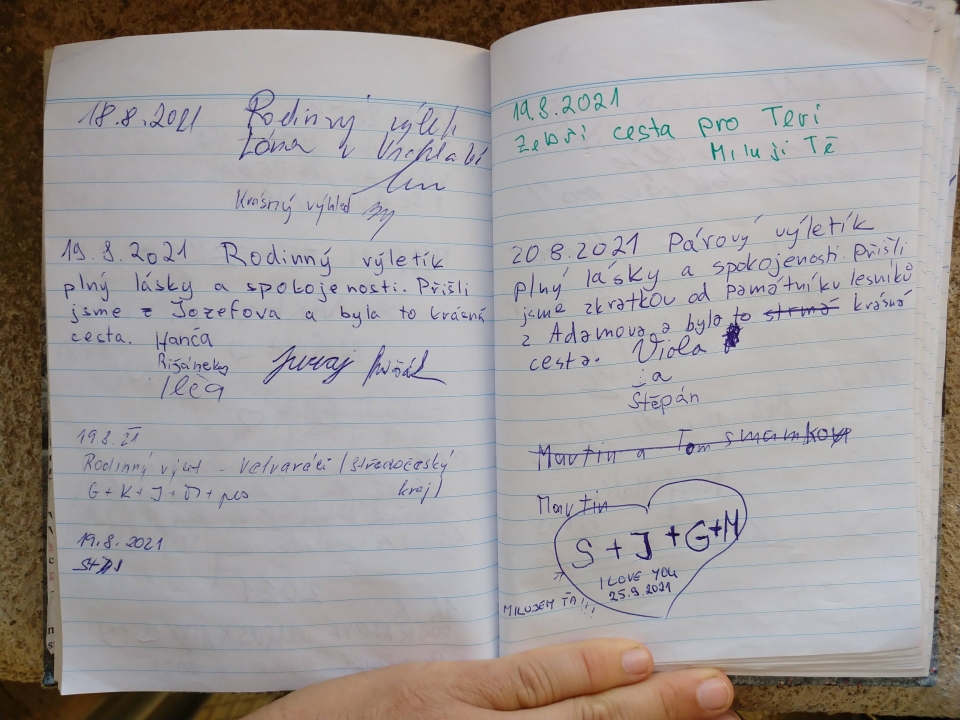 18.8.2021 Rodinný výlet
z Vrchlabí
Krásný výhled
19.8.2021 Rodinný výletík
plný lásky a spokojenosti. Přišli
jsme z Jozefova a byla to krásná
cesta. Hanča
19.8.21
Rodinný výlet - Velvaráci (středočeský
G + K + J + + pes kraj)
19.8.2021
19.8.2021
Zebří cesta pro Teri
Miluji Tě
20 8.2021 Párový výletík
plný lásky a spokojenosti. Přišli
jsme zkratkou od památníku lesníků
z Adamova a byla to strmá krásná
cesta. Viola
a
Štěpán
Martin a Tom
Martin
S + J + G + M
I LOVE YOU
25.9.2021
MILUJEM ŤA!!!